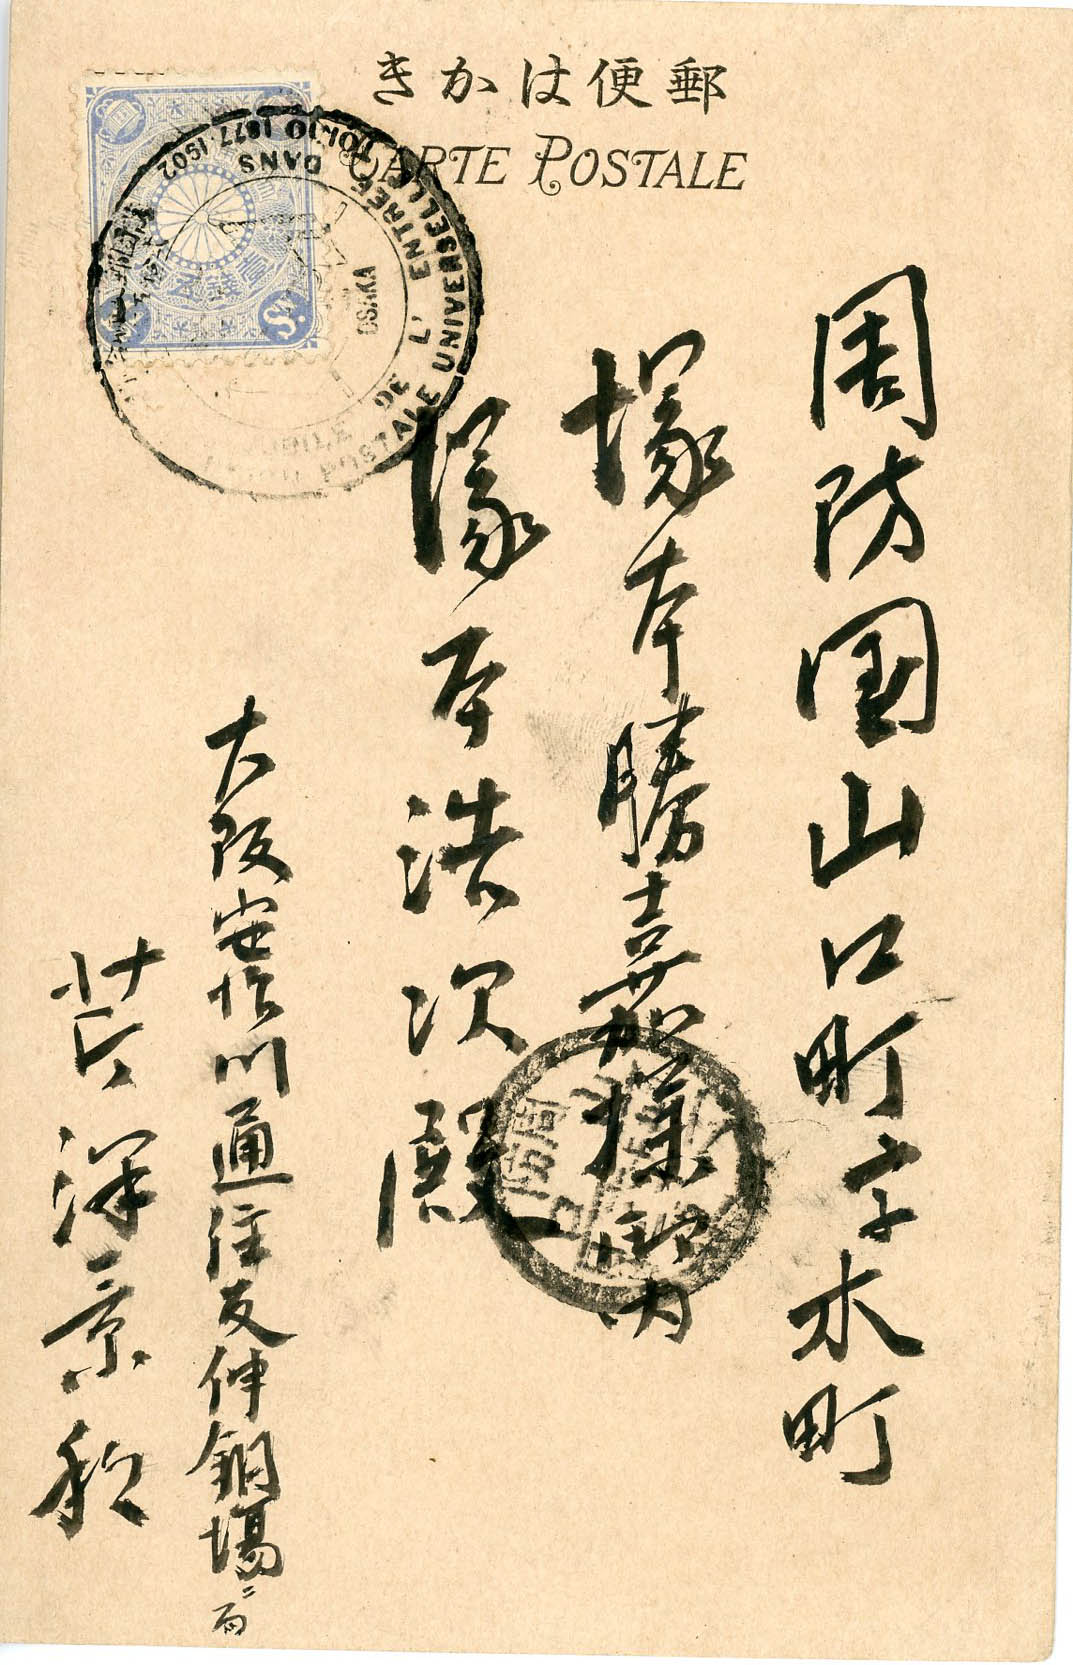 きかは便郵
CARTE POSTALE
周防国山口町字水町
塚本勝嘉様
内
塚本浩次殿
大阪安治川通住友伸銅場
景秋
DE L'ENTREE DANS
POSTALE UNIVERSELLE TOKIO 1877-1902
OSAKA
壹錢五
Sn
周防